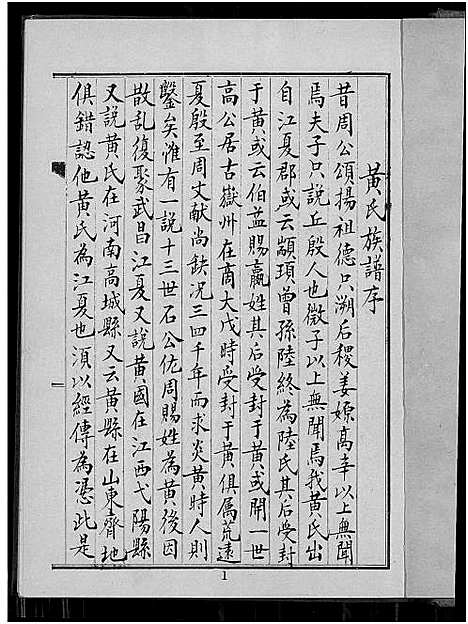 黄氏族譜序
昔周公頌揚祖德只溯后稷姜嫄高辛以上無聞
焉夫子只說丘殷人也微子以上無聞焉我黄氏出
自江夏郡或云顓頊曾孫陸終為陸氏其后受封
于黄或云伯益賜嬴姓其后受封于黄或開一世
高公居古嶽州在商大戊時受封于黄俱属荒遠
夏殷至周文献尚缺况三四千年而求炎黄時人則
鑿矣惟有一說十三世石公佐周賜姓為黄後因
散乱復聚武昌江夏又說黄國在江西弋陽縣
又說黄氏在河南高城縣又云黄縣在山東齊地
俱錯認他黄氏為江夏也須以經傳為憑此是
1